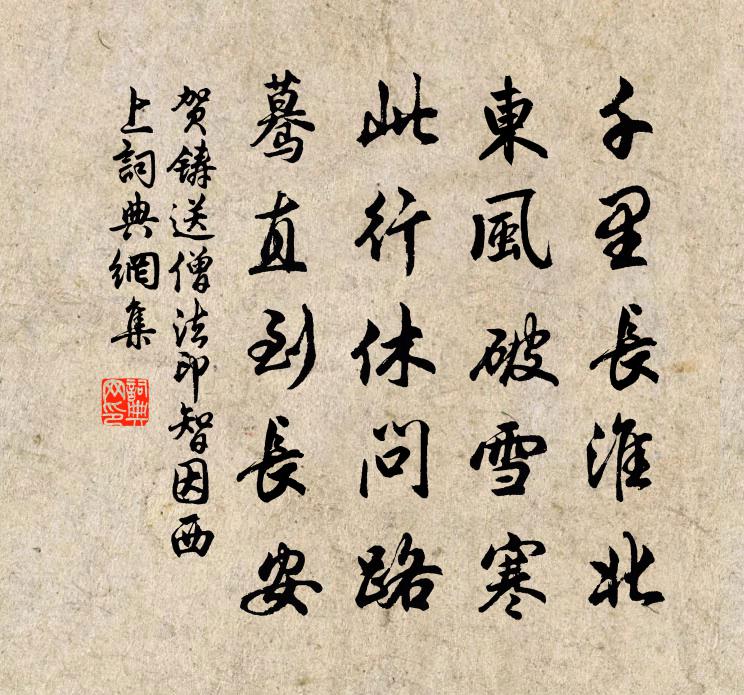 千里長淮北
東風破雪寒
此行休問路
驀直到長安
賀鑄送僧法印智因西
上詞典網集
詞典網印